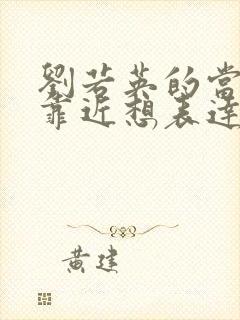 劉若英的當
靠近想表達
黃建